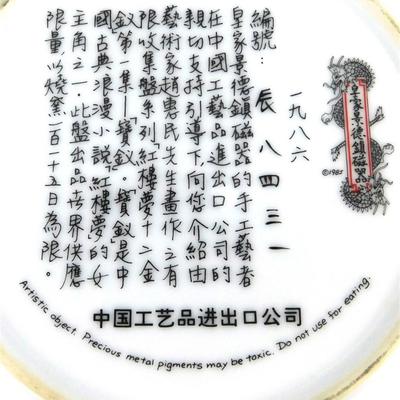 皇家景德鎮磁器
©1985
一九八六
編號：辰八四三一
皇家景德鎮磁器的手工藝者
在中國工藝品進出口公司的
親切支持引導下，向您介紹由
藝術家趙惠民先生畫作之有
限收集盤系列「紅樓夢」十二金
釵第一集—「寶釵」。「寶釵」是中
國古典浪漫小說「紅樓夢」的女
主角之一。此盤出品世界供應
限量，以燒窯一百十五日為限。
中国工艺品进出口公司
Artistic object. Precious metal pigments may be toxic. Do not use for eating.